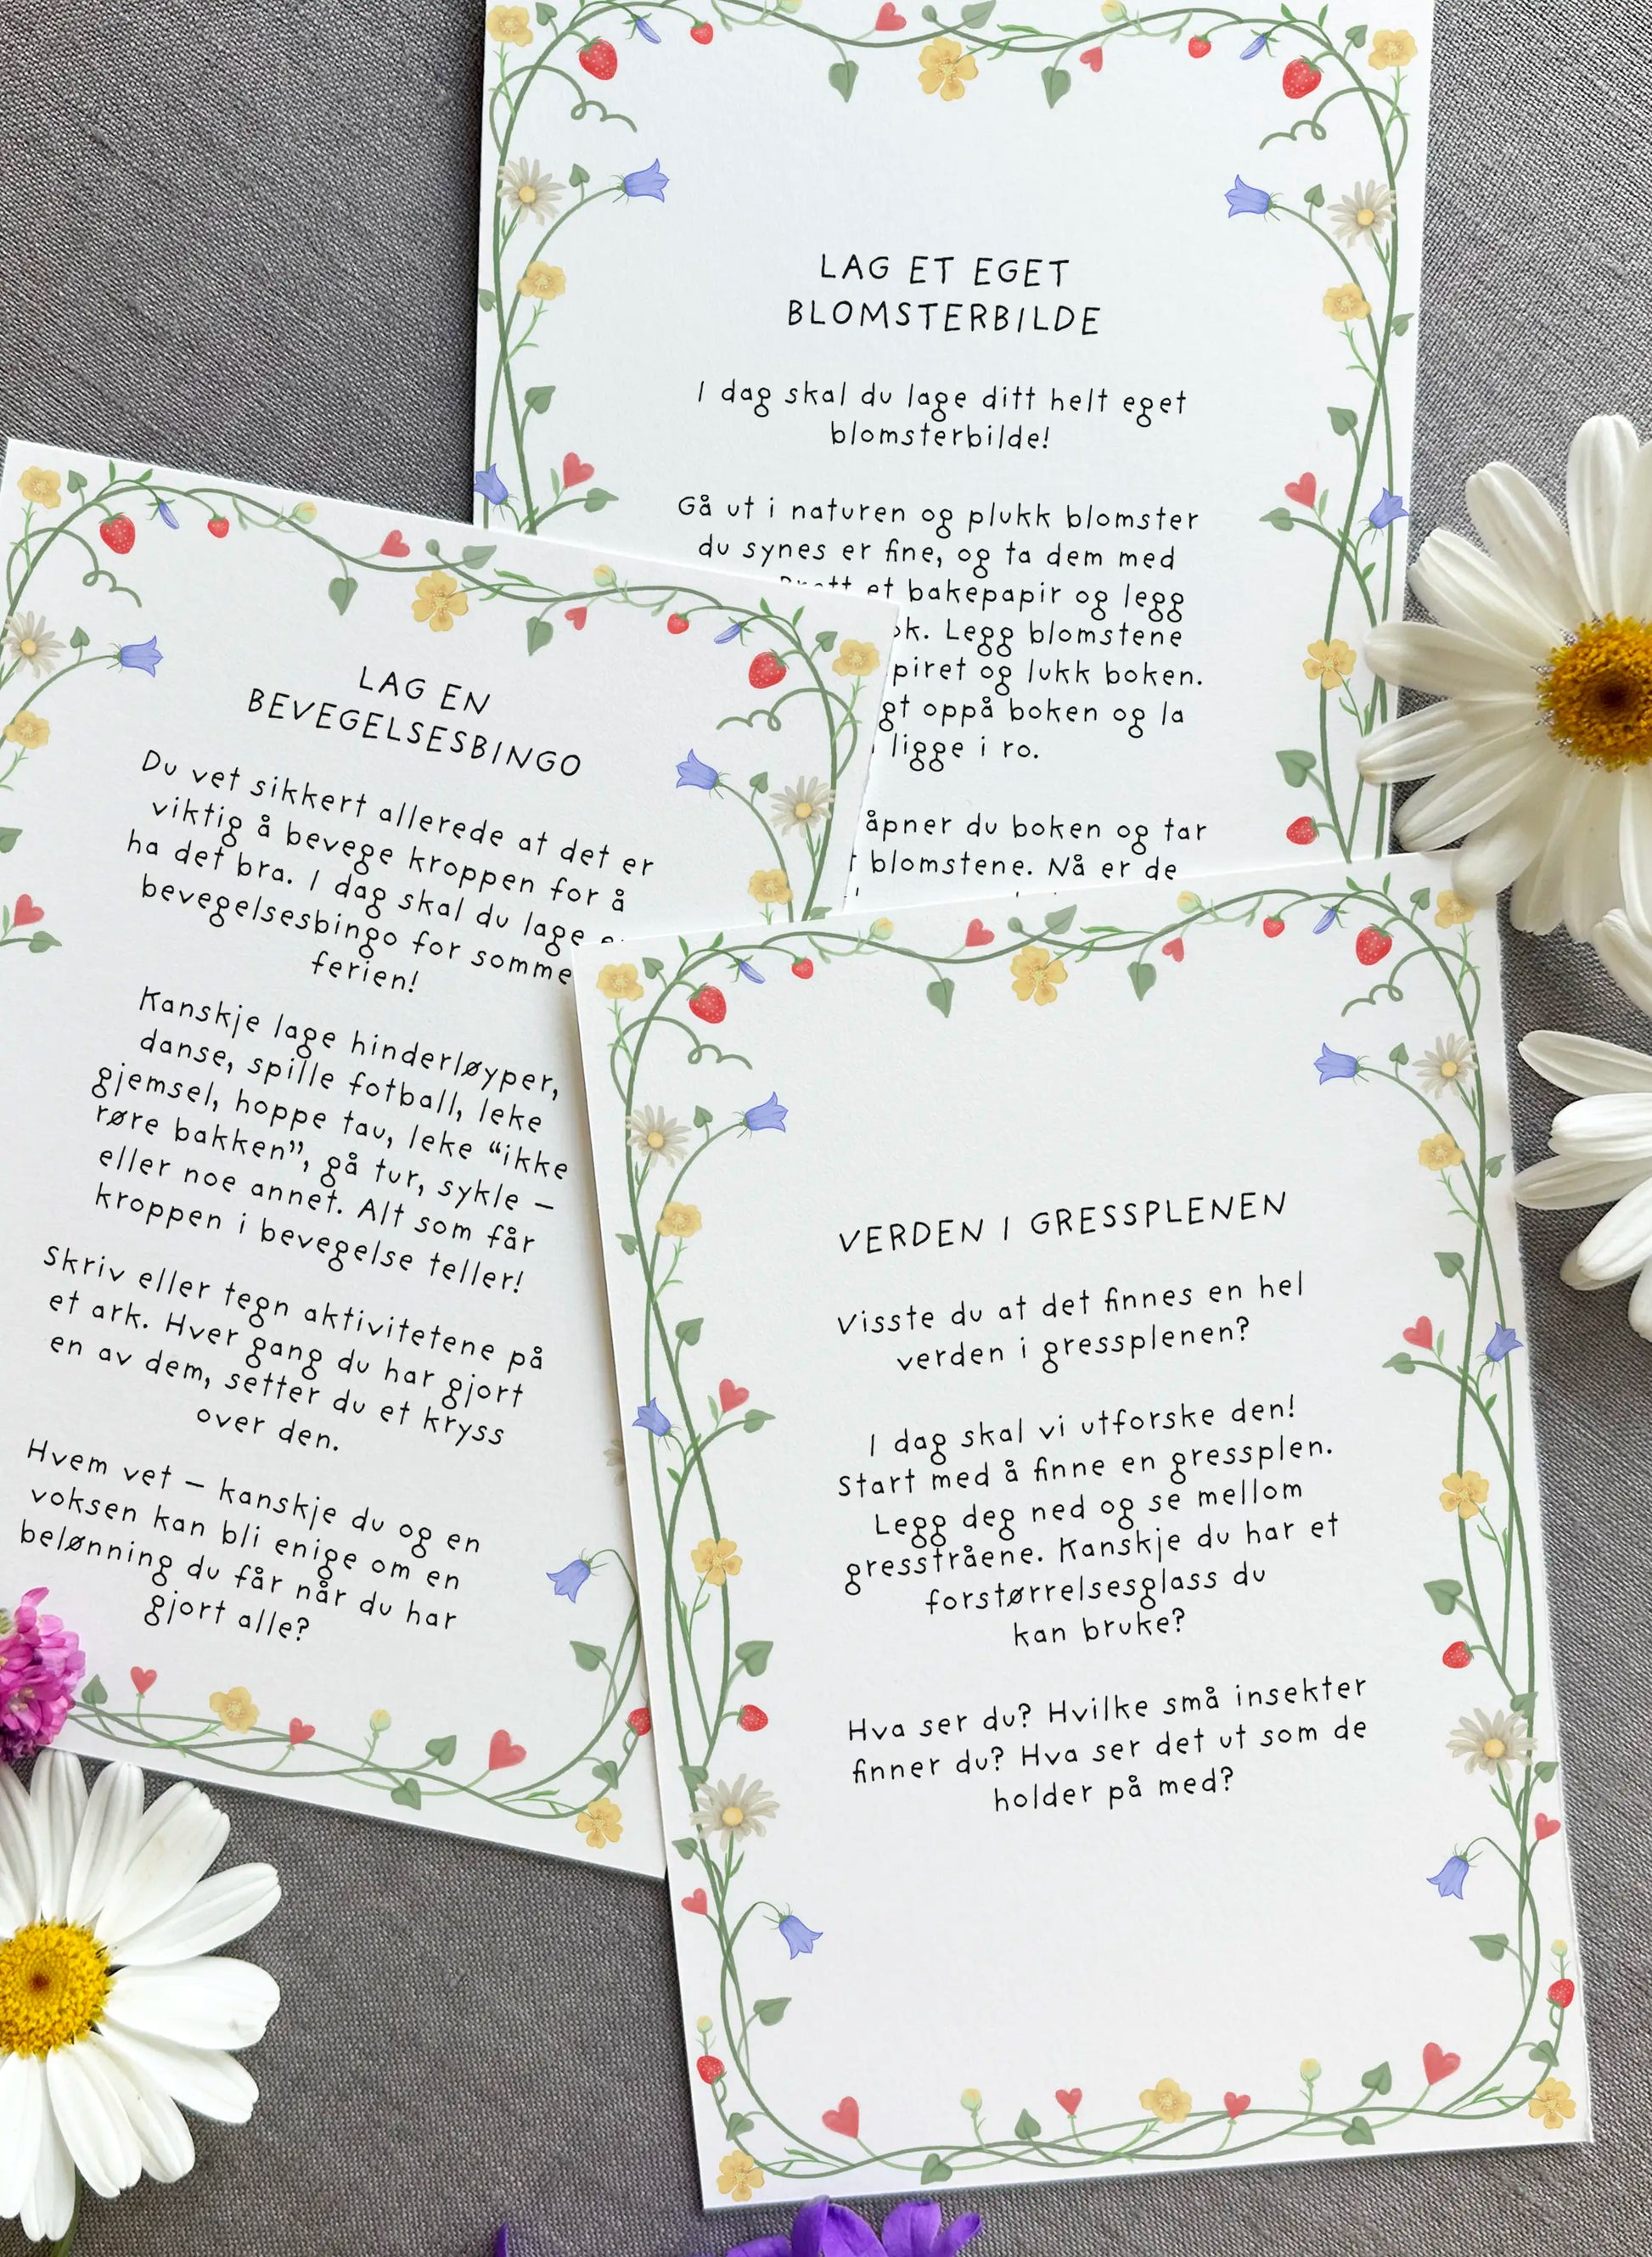 LAG ET EGET
BLOMSTERBILDE
I dag skal du lage ditt helt eget
blomsterbilde!
Gå ut i naturen og plukk blomster
du synes er fine, og ta dem med
et bakepapir og legg
Legg blomstene
og lukk boken.
oppå boken og la
ligge i ro.
åpner du boken og tar
blomstene. Nå er de
LAG EN
BEVEGELSESBINGO
Du vet sikkert allerede at det er
viktig å bevege kroppen for å
ha det bra. I dag skal du lage
bevegelsesbingo for somme
ferien!
Kanskje lage hinderløyper,
danse, spille fotball, leke
gjemsel, hoppe tau, leke “ikke
røre bakken”, gå tur, sykle –
eller noe annet. Alt som får
kroppen i bevegelse teller!
Skriv eller tegn aktivitetene på
et ark. Hver gang du har gjort
en av dem, setter du et kryss
over den.
Hvem vet – kanskje du og en
voksen kan bli enige om en
belønning du får når du har
gjort alle?
VERDEN I GRESSPLENEN
Visste du at det finnes en hel
verden i gressplenen?
I dag skal vi utforske den!
Start med å finne en gressplen.
Legg deg ned og se mellom
gresstråene. Kanskje du har et
forstørrelsesglass du
kan bruke?
Hva ser du? Hvilke små insekter
finner du? Hva ser det ut som de
holder på med?